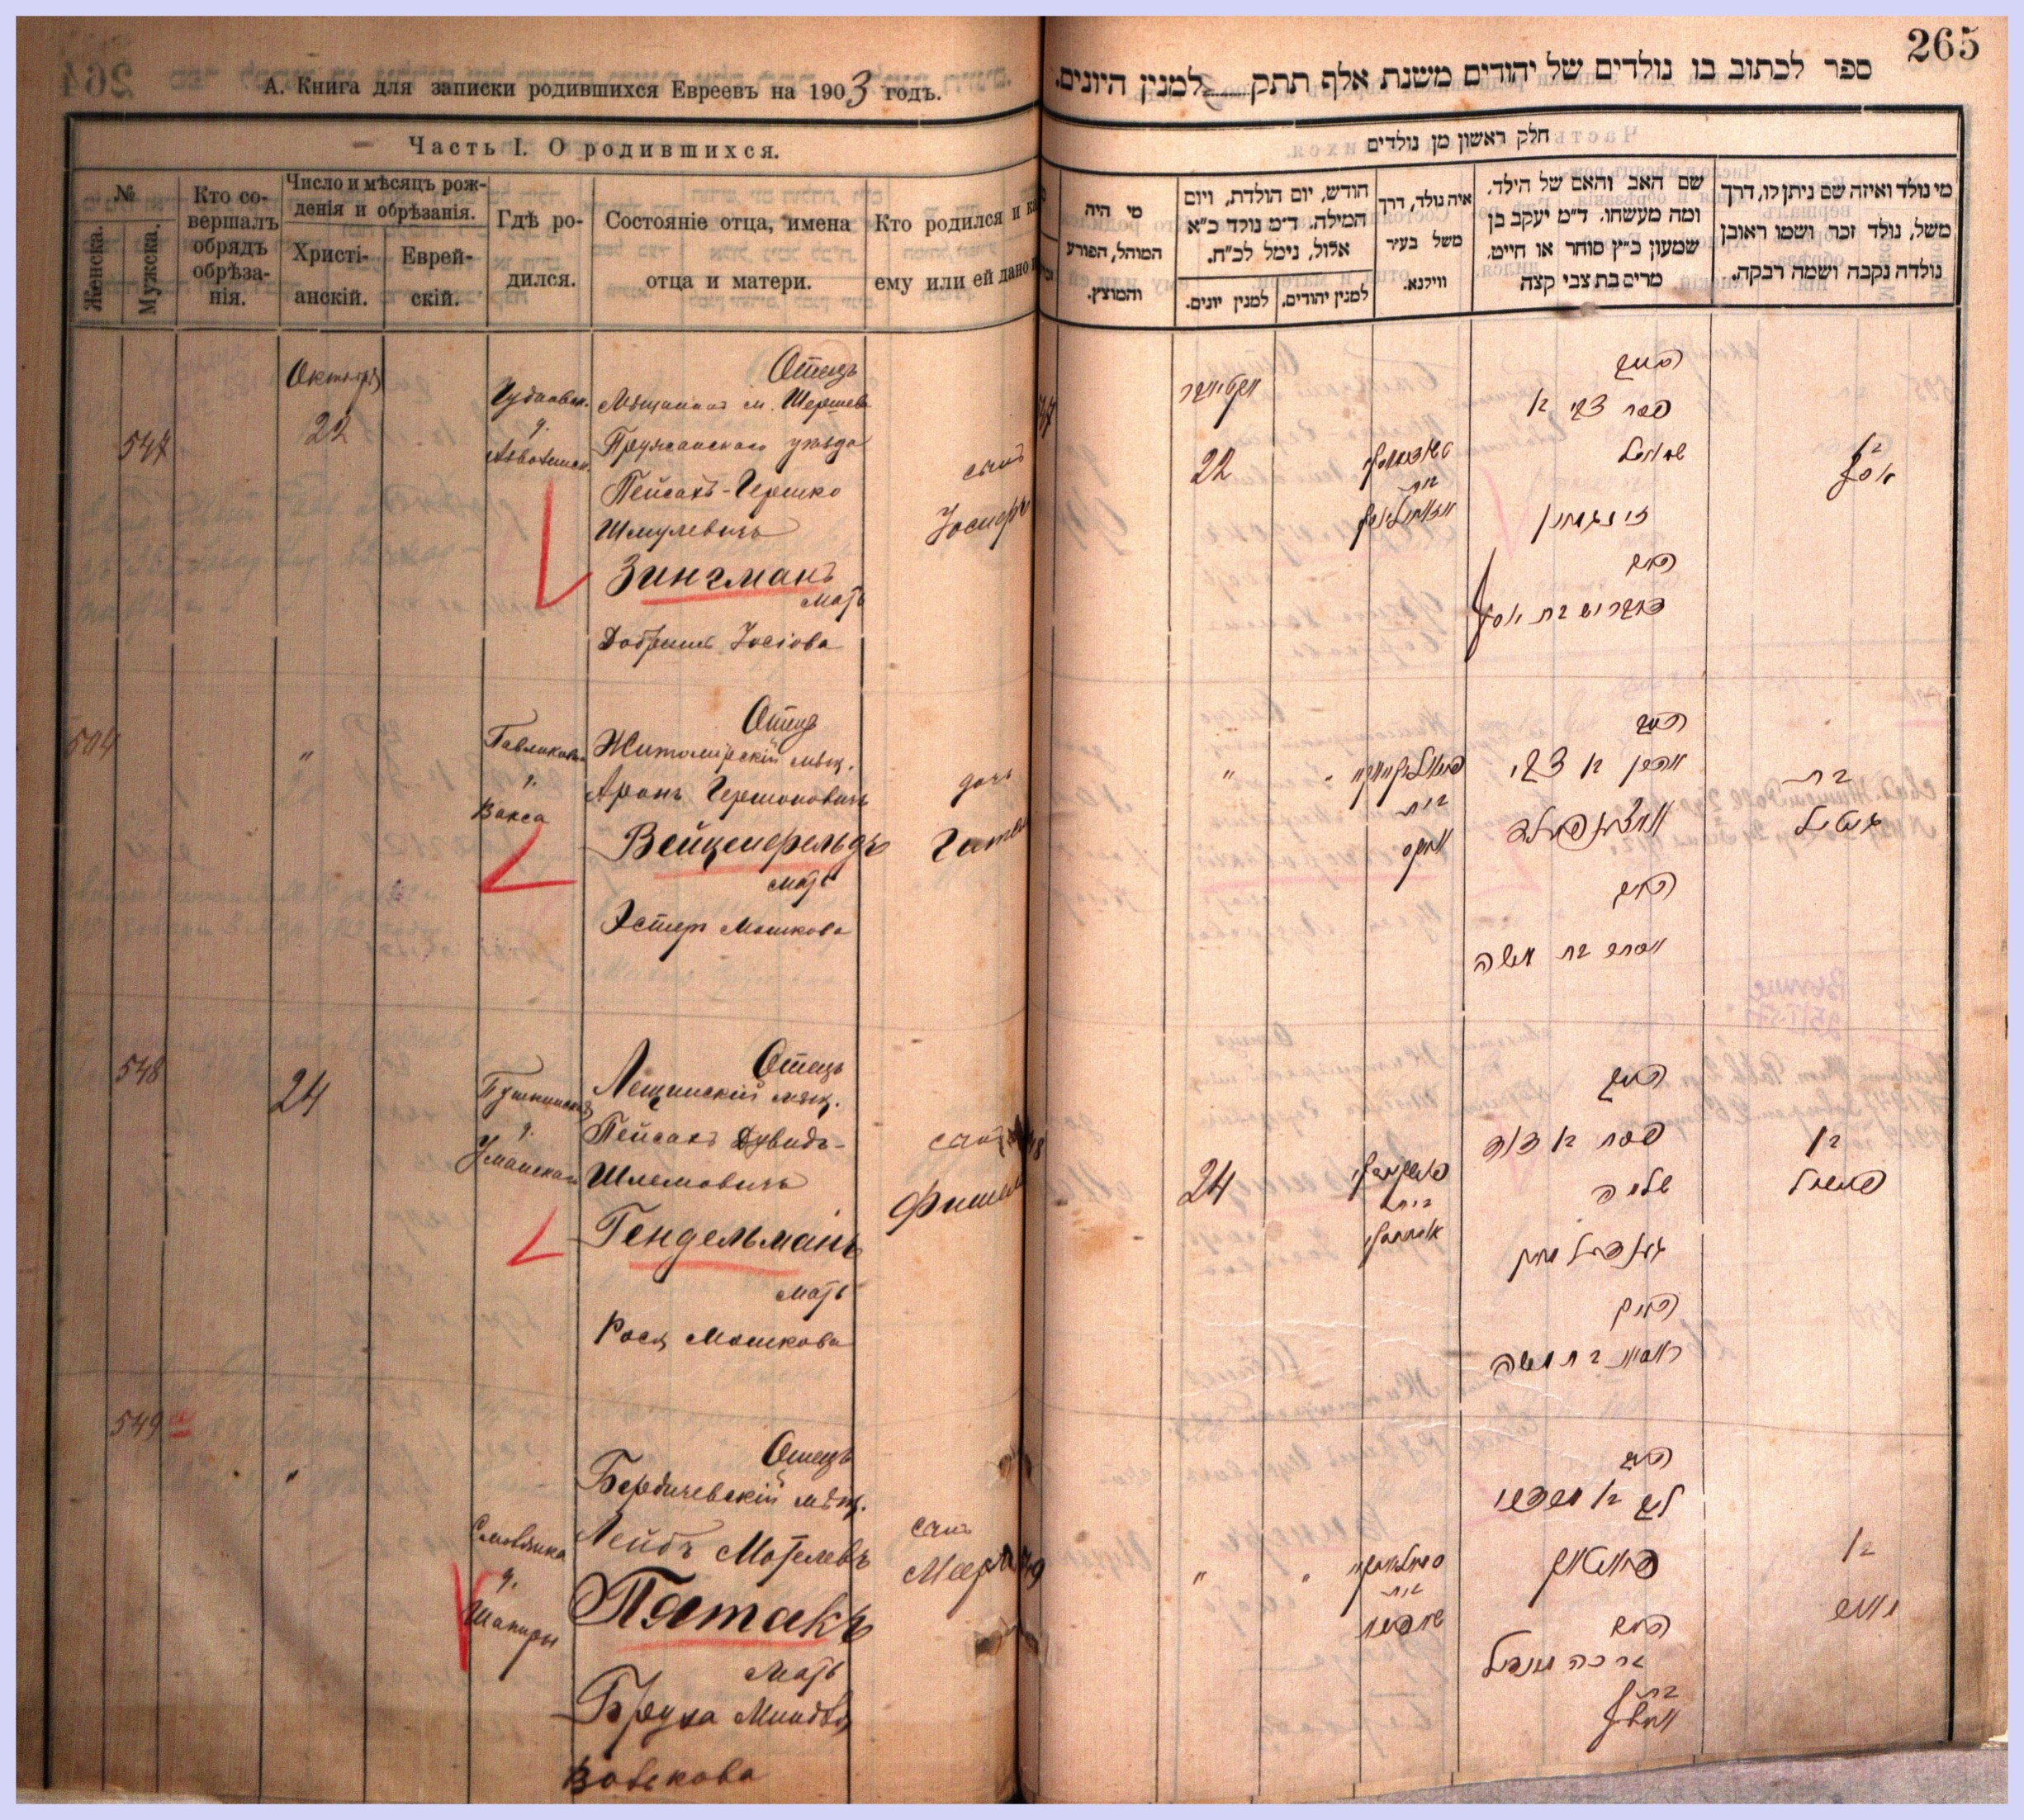 А. Книга для записки родившихся Евреевъ на 1903 годъ.
Часть I. О родившихся.
№
Женска.
Мужска.
Кто со-
вершалъ
обрядъ
обрѣза-
нія.
Число и мѣсяцъ рож-
денія и обрѣзанія.
Христі-
анскій.
Еврей-
скій.
Гдѣ ро-
дился.
Состояніе отца, имена
отца и матери.
Кто родился и
ему или ей дано
547
Октября
22
Отецъ
Мѣщанинъ м. Шершева
Пружанскаго уѣзда
Пейсахъ-Гершко
Шмулевичъ
Зингманъ
Мать
Добришъ Іосіова
сынъ
Іосифъ
504
"
Вакса
Отецъ
Житомірскій мѣщ.
Аронъ Гершоновичъ
Вейценфельдъ
Мать
Эстеръ Мошкова
дочь
Гитель
548
24
Пушкинская
Уманскаго
Отецъ
Пейсахъ Дувидъ-
Шлемовичъ
Гендельманъ
Мать
Рося Мошкова
сынъ
Фишель
549
"
Шапиры
Отецъ
Бердичевскій мѣщ.
Лейбъ Мотелевъ
Пятакъ
Мать
Бруха Миндля
Вовкова
сынъ
Мееръ
265
ספר לכתוב בו נולדים של יהודים משנת אלף תתק 3 למנין היונים.
חלק ראשון מן נולדים
מי נולד ואיזה שם ניתן לו, דרך
משל, נולד זכר ושמו ראובן
נולדה נקבה ושמה רבקה.
שם האב והאם של הילד,
ומה מעשהו. ד״מ יעקב בן
שמעון כ״ץ סוחר או חייט,
מרים בת צבי קצה
איה נולד, דרך
משל בעיר
ווילנא.
חודש, יום הולדת, ויום
המילה. ד״מ נולד כ״א
אלול, נימל לכ״ח.
למנין יהודים.
למנין יונים.
מי היה
המוהל, הפורע
והמוצץ.
אקטיאבר
22
האב
פסח צבי בן
שמואל
זינגמאן
האם
דאבריש בת יוסף
בן
יוסף
"
"
בית
וואקס
האב
אהרן בן צבי
ווייצענפעלד
האם
אסתר בת משה
בת
גיטיל
24
בית
האב
פסח בן דוד
שלמה
גענדעלמאן
האם
ראסיא בת משה
בן
פישעל
"
"
בית
שאפירא
האב
ליב בן מרדכי
פיאטאק
האם
ברכה מינדיל
בת
וואלף
בן
מאיר